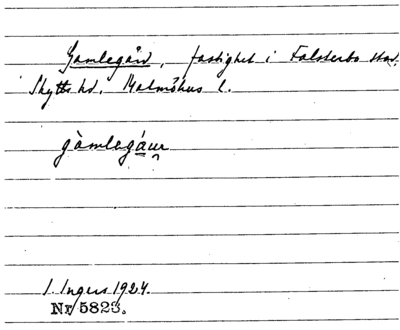 Gamlegård, fastighet i Falsterbo stad.
Skytts hd. Malmöhus l.
gàmlegáɯr
I. Ingers 1924.
Nr 5823.